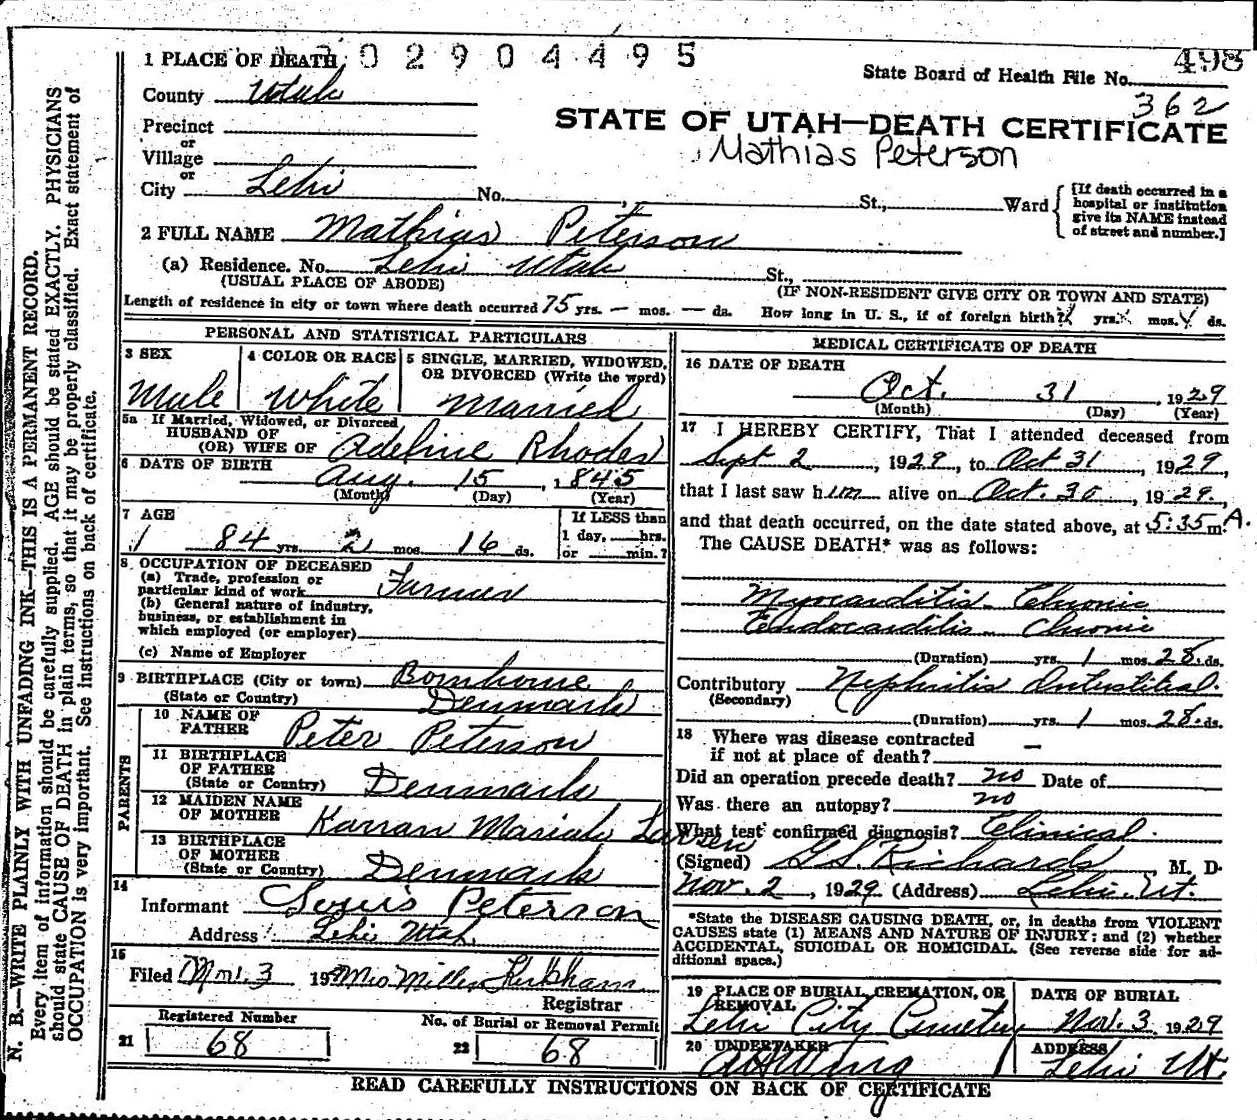 N. B.—WRITE PLAINLY WITH UNFADING INK—THIS IS A PERMANENT RECORD.
Every item of information should be carefully supplied. AGE should be stated EXACTLY. PHYSICIANS
should state CAUSE OF DEATH in plain terms, so that it may be properly classified. Exact statement of
OCCUPATION is very important. See instructions on back of certificate.
1 PLACE OF DEATH
0 2 9 0 4 4 9 5
State Board of Health File No. 498
362
County Utah
STATE OF UTAH—DEATH CERTIFICATE
Mathias Peterson
Precinct
or
Village
or
City Lehi No. St., Ward
[If death occurred in a
hospital or institution
give its NAME instead
of street and number.]
2 FULL NAME Mathias Peterson
(a) Residence. No. Lehi Utah St.,
(USUAL PLACE OF ABODE) (IF NON-RESIDENT GIVE CITY OR TOWN AND STATE)
Length of residence in city or town where death occurred 75 yrs. — mos. — ds. How long in U. S., if of foreign birth? yrs. mos. ds.
PERSONAL AND STATISTICAL PARTICULARS
3 SEX
Male
4 COLOR OR RACE
White
5 SINGLE, MARRIED, WIDOWED,
OR DIVORCED (Write the word)
Married
5a If Married, Widowed, or Divorced
HUSBAND OF
(OR) WIFE OF Adeline Rhodes
6 DATE OF BIRTH
Aug. 15, 1845
(Month) (Day) (Year)
7 AGE
84 yrs. 2 mos. 16 ds.
If LESS than
1 day, hrs.
or min.?
8 OCCUPATION OF DECEASED
(a) Trade, profession or
particular kind of work Farmer
(b) General nature of industry,
business, or establishment in
which employed (or employer)
(c) Name of Employer
9 BIRTHPLACE (City or town) Bornhome
(State or Country) Denmark
PARENTS
10 NAME OF
FATHER Peter Peterson
11 BIRTHPLACE
OF FATHER
(State or Country) Denmark
12 MAIDEN NAME
OF MOTHER Karran Mariah Larsen
13 BIRTHPLACE
OF MOTHER
(State or Country) Denmark
14
Informant Louis Peterson
Address Lehi Utah
15
Filed 3 19 Mrs Kirkham
Registrar
Registered Number
21 68
No. of Burial or Removal Permit
22 68
MEDICAL CERTIFICATE OF DEATH
16 DATE OF DEATH
Oct. 31, 1929
(Month) (Day) (Year)
17 I HEREBY CERTIFY, That I attended deceased from
Sept 2, 1929, to Oct 31, 1929,
that I last saw him alive on Oct. 30, 1929.
and that death occurred, on the date stated above, at 5:35 m. A.
The CAUSE DEATH* was as follows:
Myocarditis Chronic
Endocarditis Chronic
(Duration) yrs. 1 mos. 28. ds.
Contributory Nephritis Intestitial.
(Secondary)
(Duration) yrs. 1 mos. 28. ds.
18 Where was disease contracted
if not at place of death? —
Did an operation precede death? no Date of
Was there an autopsy? no
What test confirmed diagnosis? Clinical.
(Signed) G.S. Richards, M. D.
Nov. 2, 1929 (Address) Lehi. Ut.
*State the DISEASE CAUSING DEATH, or, in deaths from VIOLENT
CAUSES state (1) MEANS AND NATURE OF INJURY; and (2) whether
ACCIDENTAL, SUICIDAL OR HOMICIDAL. (See reverse side for ad-
ditional space.)
19 PLACE OF BURIAL, CREMATION, OR
REMOVAL
Lehi City Cemetery
DATE OF BURIAL
Nov. 3 1929
20 UNDERTAKER
ADDRESS
Lehi Ut.
READ CAREFULLY INSTRUCTIONS ON BACK OF CERTIFICATE